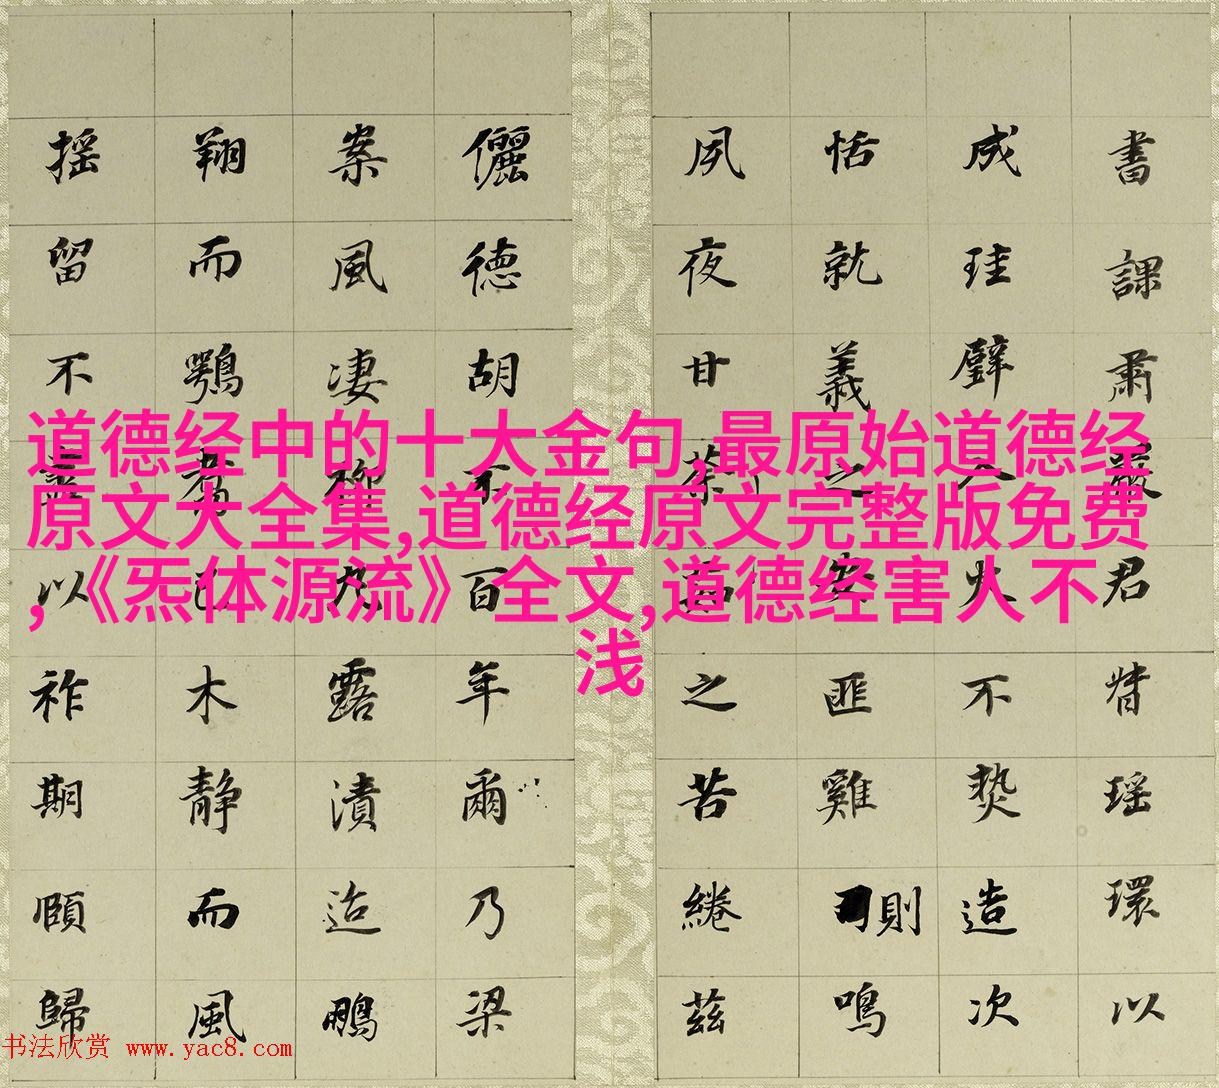 書課肅嚴君瑶環以
成珪璧入火不爇造次
恬就義之安匪雞則鳴
夙夜甘荼之苦綣茲
儷德胡不百年爾乃梁
案風凄柳露漬迨鵬
翔而鶚已木靜而風
摇留不以祚期頤歸
道德经中的十大金句,最原始道德经
原文大全集,道德经原文完整版免费
,《炁体源流》全文,道德经害人不
浅
书法欣赏 www.yac8.com